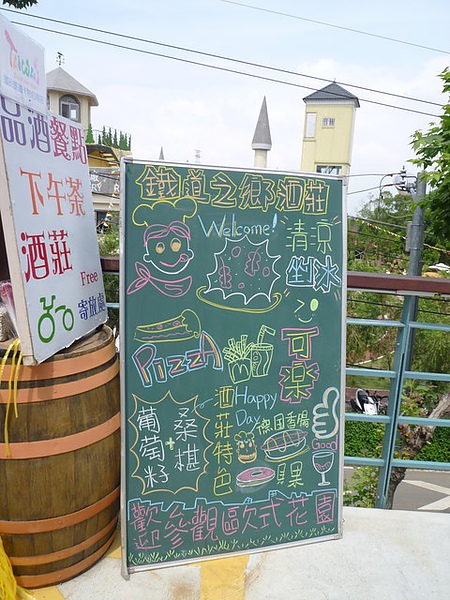 品酒餐點
下午茶
酒莊
Free
寄放處
鐵道之鄉酒莊
Welcome!
清涼
剉冰
PizzA
可樂
葡萄籽
+
桑椹
酒莊特色
Happy
Day
德國香腸
貝果
Good
歡迎參觀歐式花園